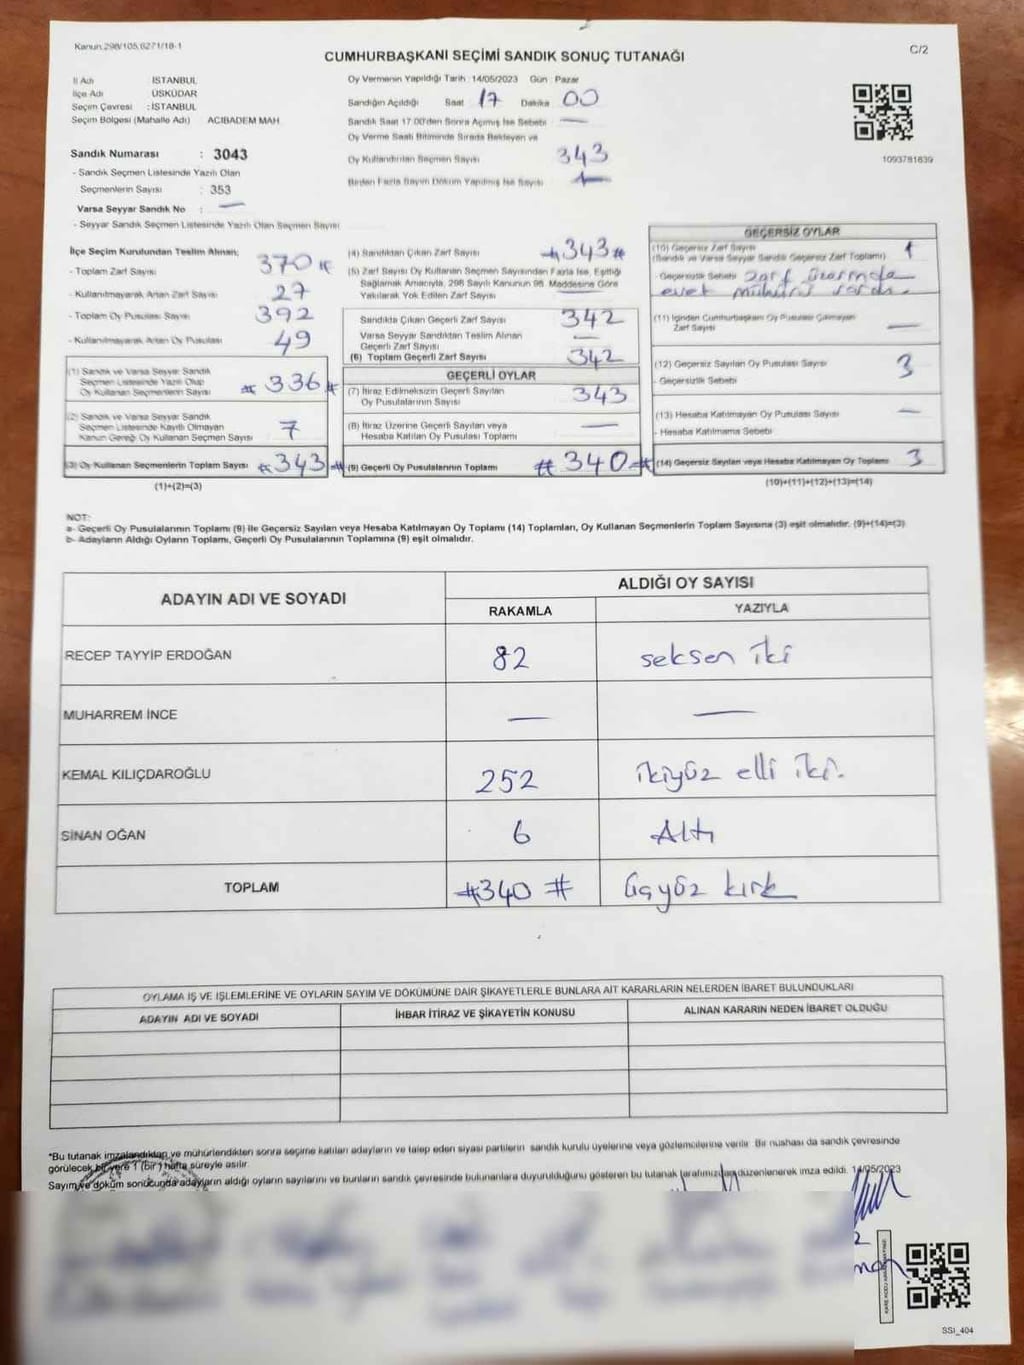 Kanun.298/105,6271/18-1
C/2
CUMHURBAŞKANI SEÇİMİ SANDIK SONUÇ TUTANAĞI
İl Adı İSTANBUL
İlçe Adı ÜSKÜDAR
Seçim Çevresi : İSTANBUL
Seçim Bölgesi (Mahalle Adı) ACIBADEM MAH
Sandık Numarası : 3043
- Sandık Seçmen Listesinde Yazılı Olan
Seçmenlerin Sayısı : 353
Varsa Seyyar Sandık No : —
- Seyyar Sandık Seçmen Listesinde Yazılı Olan Seçmen Sayısı
Oy Vermenin Yapıldığı Tarih : 14/05/2023 Gün : Pazar
Sandığın Açıldığı Saat 17 Dakika 00
Sandık Saat 17.00'den Sonra Açımış İse Sebebi —
Oy Verme Saati Bitiminde Sırada Bekleyen ve
Oy Kullandırılan Seçmen Sayısı 343
Birden Fazla Sayım Döküm Yapılmış İse Sayısı
1093781639
İlçe Seçim Kurulundan Teslim Alınan;
- Toplam Zarf Sayısı 370
- Kullanılmayarak Artan Zarf Sayısı 27
- Toplam Oy Pusulası Sayısı 392
- Kullanılmayarak Artan Oy Pusulası 49
(1) Sandık ve Varsa Seyyar Sandık
Seçmen Listesinde Yazılı Olup
Oy Kullanan Seçmenlerin Sayısı # 336 #
(2) Sandık ve Varsa Seyyar Sandık
Seçmen Listesinde Kayıtlı Olmayan
Kanun Gereği Oy Kullanan Seçmen Sayısı 7
(3) Oy Kullanan Seçmenlerin Toplam Sayısı #343#
(1)+(2)=(3)
(4) Sandıktan Çıkan Zarf Sayısı #343#
(5) Zarf Sayısı Oy Kullanan Seçmen Sayısından Fazla İse, Eşitliği
Sağlamak Amacıyla, 298 Sayılı Kanunun 98. Maddesine Göre
Yakılarak Yok Edilen Zarf Sayısı —
Sandıkta Çıkan Geçerli Zarf Sayısı 342
Varsa Seyyar Sandıktan Teslim Alınan
Geçerli Zarf Sayısı —
(6) Toplam Geçerli Zarf Sayısı 342
GEÇERLİ OYLAR
(7) İtiraz Edilmeksizin Geçerli Sayılan
Oy Pusulalarının Sayısı 343
(8) İtiraz Üzerine Geçerli Sayılan veya
Hesaba Katılan Oy Pusulası Toplamı —
(9) Geçerli Oy Pusulalarının Toplamı #340#
GEÇERSİZ OYLAR
(10) Geçersiz Zarf Sayısı
(Sandık ve Varsa Seyyar Sandık Geçersiz Zarf Toplamı) 1
- Geçersizlik Sebebi Zarf üzerinde
evet mühürü vardı.
(11) İçinden Cumhurbaşkanı Oy Pusulası Çıkmayan
Zarf Sayısı —
(12) Geçersiz Sayılan Oy Pusulası Sayısı 3
- Geçersizlik Sebebi
(13) Hesaba Katılmayan Oy Pusulası Sayısı —
- Hesaba Katılmama Sebebi
(14) Geçersiz Sayılan veya Hesaba Katılmayan Oy Toplamı 3
(10)+(11)+(12)+(13)=(14)
NOT:
a- Geçerli Oy Pusulalarının Toplamı (9) ile Geçersiz Sayılan veya Hesaba Katılmayan Oy Toplamı (14) Toplamları, Oy Kullanan Seçmenlerin Toplam Sayısına (3) eşit olmalıdır. (9)+(14)=(3)
b- Adayların Aldığı Oyların Toplamı, Geçerli Oy Pusulalarının Toplamına (9) eşit olmalıdır.
ADAYIN ADI VE SOYADI ALDIĞI OY SAYISI
RAKAMLA YAZIYLA
RECEP TAYYİP ERDOĞAN 82 seksen iki
MUHARREM İNCE — —
KEMAL KILIÇDAROĞLU 252 ikiyüz elli iki.
SİNAN OĞAN 6 Altı
TOPLAM #340 # üçyüz kırk
OYLAMA İŞ VE İŞLEMLERİNE VE OYLARIN SAYIM VE DÖKÜMÜNE DAİR ŞİKAYETLERLE BUNLARA AİT KARARLARIN NELERDEN İBARET BULUNDUKLARI
ADAYIN ADI VE SOYADI İHBAR İTİRAZ VE ŞİKAYETİN KONUSU ALINAN KARARIN NEDEN İBARET OLDUĞU
*Bu tutanak imzalandıktan ve mühürlendikten sonra seçime katılan adayların ve talep eden siyasi partilerin sandık kurulu üyelerine veya gözlemcilerine verilir. Bir nüshası da sandık çevresinde
görülecek bir yere 1 (bir) hafta süreyle asılır.
Sayım ve döküm sonucunda adayların aldığı oyların sayılarını ve bunların sandık çevresinde bulunanlara duyurulduğunu gösteren bu tutanak tarafımızdan düzenlenerek imza edildi. 14/05/2023
SSI_404